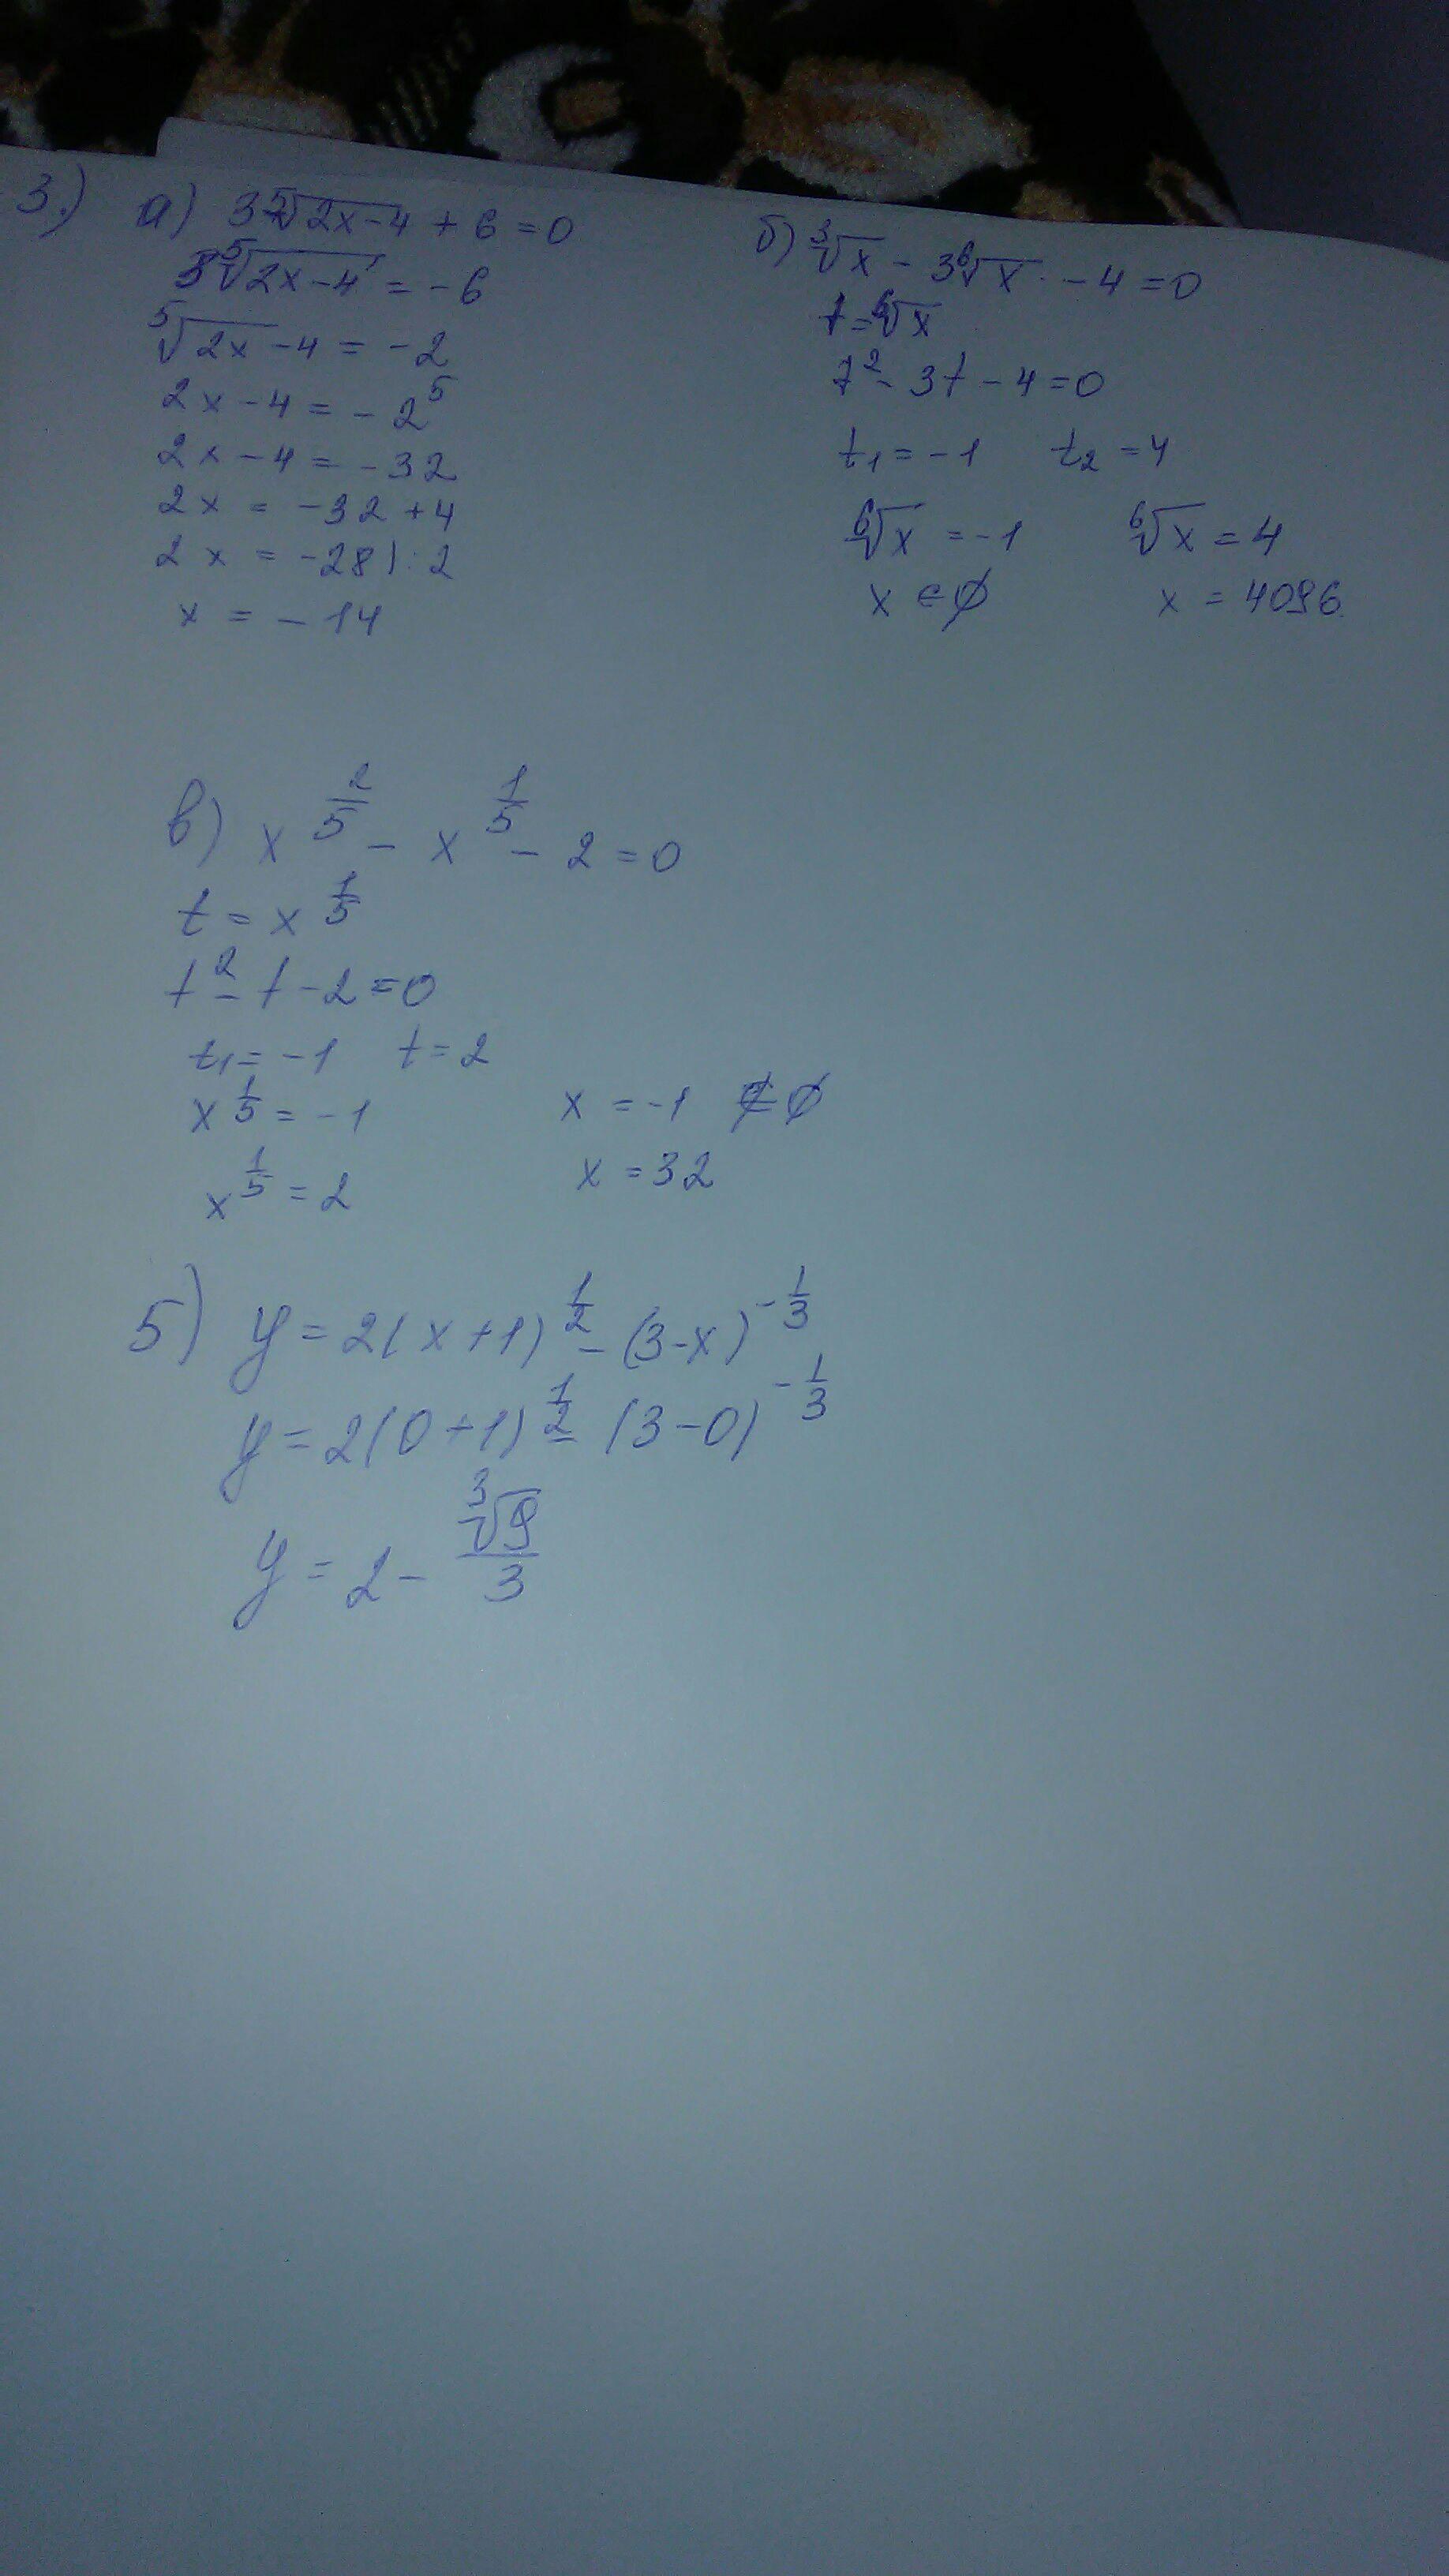 3.) а) 3⁵√(2x-4) + 6 = 0
3⁵√(2x-4) = -6
⁵√2x-4 = -2
2x-4 = -2⁵
2x-4 = -32
2x = -32+4
2x = -28 ) : 2
x = -14
б) ³√x - 3⁶√x - 4 = 0
t = ⁶√x
t² - 3t - 4 = 0
t₁ = -1 t₂ = 4
⁶√x = -1 ⁶√x = 4
x ∈ ∅ x = 4096.
в) x^(2/5) - x^(1/5) - 2 = 0
t = x^(1/5)
t² - t - 2 = 0
t₁ = -1 t = 2
x^(1/5) = -1 x = -1 ∉ ∅
x^(1/5) = 2 x = 32
5) y = 2(x+1)^(1/2) - (3-x)^(-1/3)
y = 2(0+1)^(1/2) - (3-0)^(-1/3)
y = 2 - ³√9/3